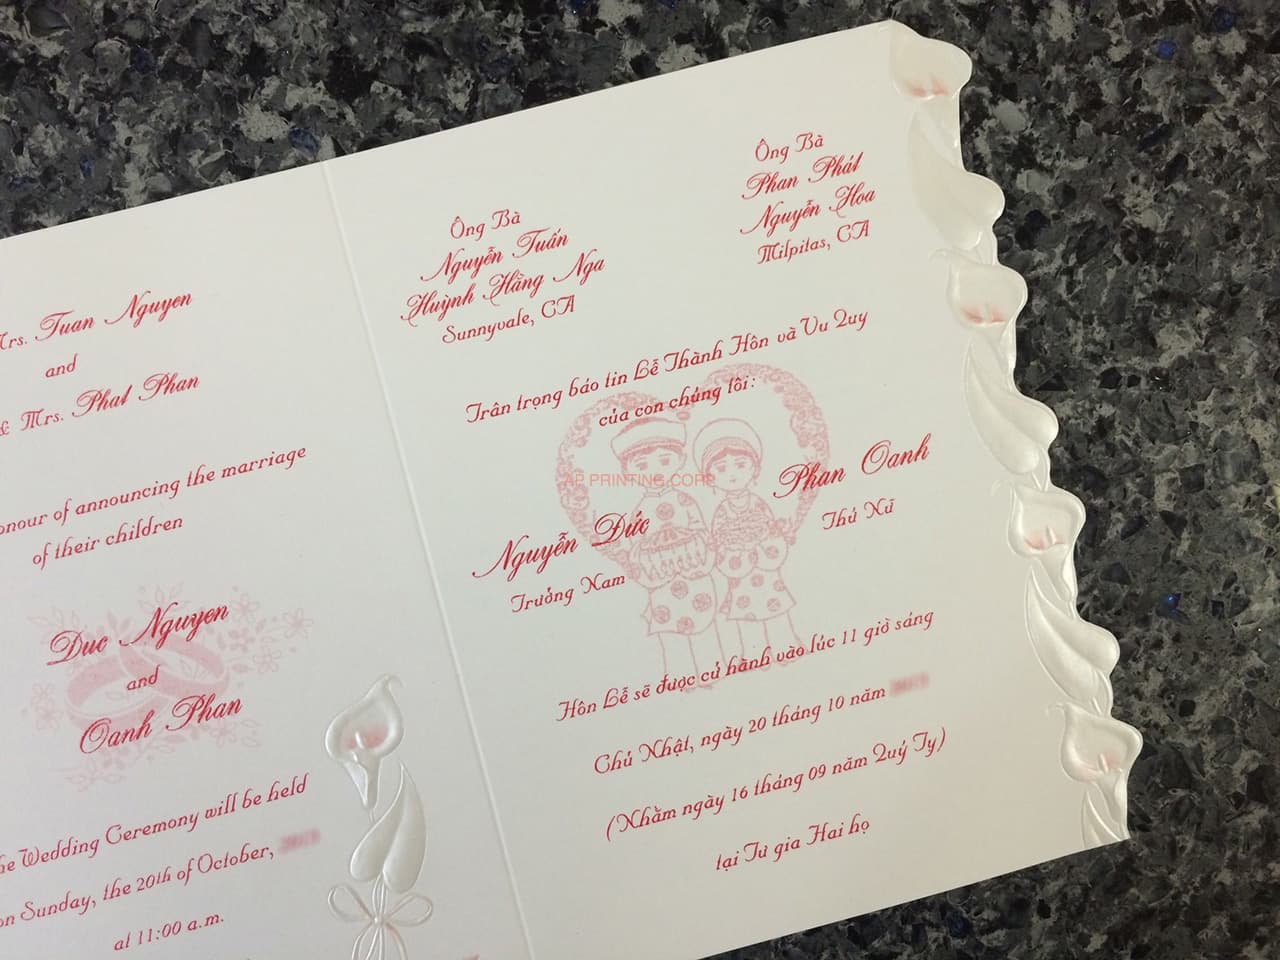 Mrs. Tuan Nguyen
and
& Mrs. Phat Phan
honour of announcing the marriage
of their children
Duc Nguyen
and
Oanh Phan
the Wedding Ceremony will be held
on Sunday, the 20th of October,
at 11:00 a.m.
Ông Bà
Nguyễn Tuấn
Huỳnh Hằng Nga
Sunnyvale, CA
Ông Bà
Phan Phát
Nguyễn Hoa
Milpitas, CA
Trân trọng báo tin Lễ Thành Hôn và Vu Quy
của con chúng tôi:
AP PRINTING CORP
Nguyễn Đức
Trưởng Nam
Phan Oanh
Thứ Nữ
Hôn Lễ sẽ được cử hành vào lúc 11 giờ sáng
Chủ Nhật, ngày 20 tháng 10 năm
(Nhằm ngày 16 tháng 09 năm Quý Tỵ)
tại Tư gia Hai họ